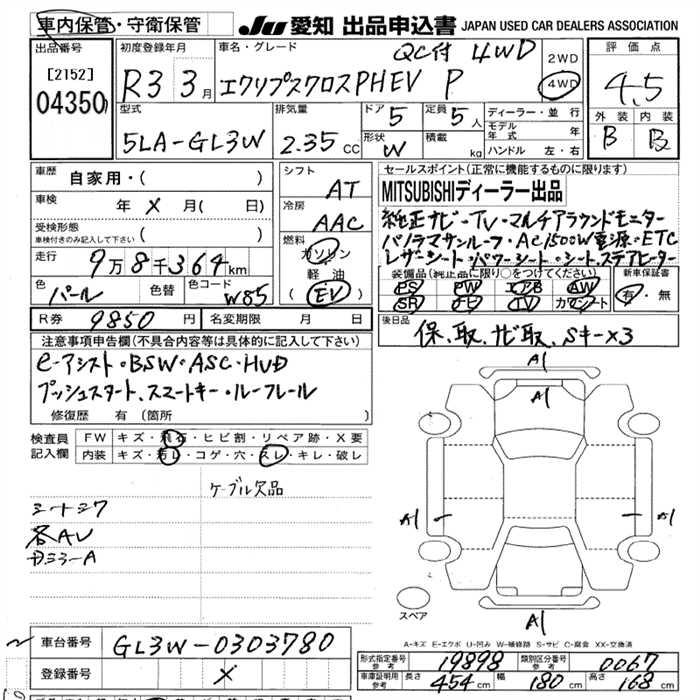 車内保管・守衛保管
JU 愛知 出品申込書 JAPAN USED CAR DEALERS ASSOCIATION
出品番号
[2152]
04350
初度登録年月
R3 3月
車名・グレード
QC付 4WD
エクリプスクロスPHEV P
2WD
4WD
評価点
4.5
外装 内装
B B
型式
5LA-GL3W
排気量
2.35 CC
ドア 5
定員 5人
形状 W
積載 kg
ディーラー・並行
モデル年式 年
ハンドル 左・右
車歴 自家用・( )
車検 年 X 月( 日)
受検形態
車検付きのみ記入して下さい ( )
走行 9万8千364km
色 パール
色替
色コード W85
シフト AT
冷房 AAC
燃料
ガソリン
軽油
(EV)
セールスポイント(正常に機能するものに限ります)
MITSUBISHIディーラー出品
純正ナビ・TV・マルチアラウンドモニター
パノラマサンルーフ・AC1500W電源・ETC
レザーシート・パワーシート・シート、ステアヒーター
装備品(純正品に限り○をつけてください)
PS PW エアB AW
SR ナビ TV カワシート
新車保証書
有・無
R券 9850円
名変期限 月 日
後日品
保、取、ナビ取、Sキーx3
注意事項申告欄(不具合内容等は具体的に記入して下さい)
e-アシスト・BSW・ASC・HUD
プッシュスタート、スマートキー・ルーフレール
修復歴 有(箇所
検査員記入欄
FW キズ・飛石・ヒビ割・リペア跡・X要
内装 キズ・汚レ・コゲ・穴・スレ・キレ・破レ
ケーブル欠品
シートシワ
各AU
A1
A1
A1
A1
スペア
A-キズ E-エクボ U-凹み W-補修跡 S-サビ C-腐食 XX-交換済
車台番号 GL3W-0303780
登録番号 X
形式指定番号 参考 19898
類別区分番号 参考 0067
車庫証明用 参考 長さ 454cm 幅 180cm 高さ 168cm